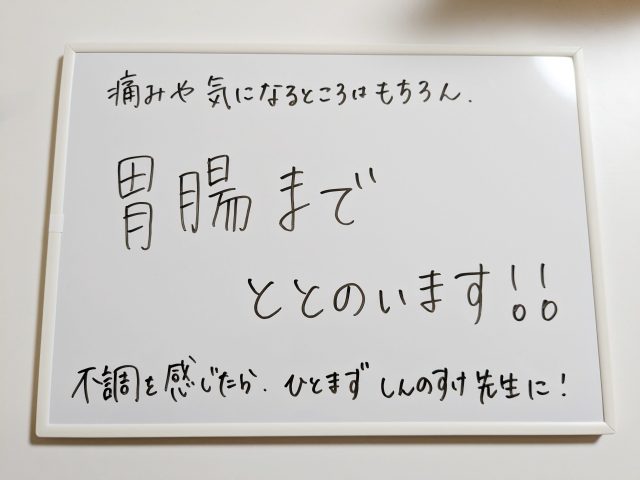 痛みや気になるところはもちろん.
胃腸まで
ととのいます!!
不調を感じたら.ひとまずしんのすけ先生に!